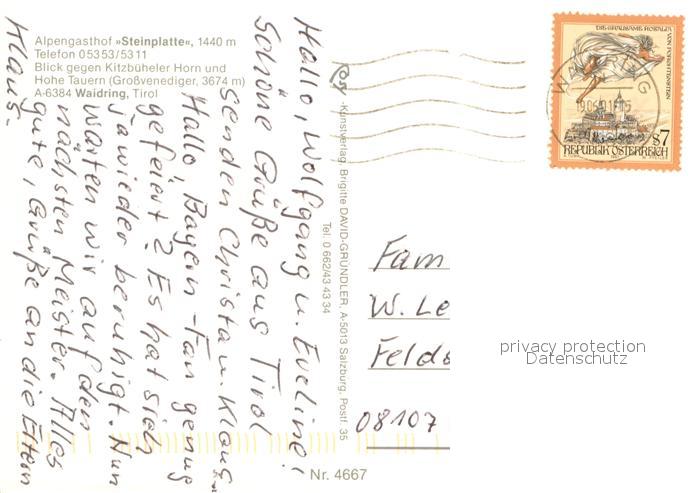 Alpengasthof »Steinplatte«, 1440 m
Telefon 05353/5311
Blick gegen Kitzbüheler Horn und
Hohe Tauern (Großvenediger, 3674 m)
A-6384 Waidring, Tirol
Hallo, Wolfgang u. Eveline!
Schöne Grüße aus Tirol
senden Christa u. Klaus.
Hallo, Bayern-Fan genug
gefeiert? Es hat sich
ja wieder beruhigt. Nun
warten wir auf den
nächsten "Meister". Alles
gute, Grüße an die Eltern
Klaus.
Rosy -Kunstverlag, Brigitte DAVID-GRÜNDLER, A-5013 Salzburg, Postf. 35
Tel. 0 662/43 43 34
Nr. 4667
DIE GRAUSAME ROSALIA VON FORCHTENSTEIN
S7
REPUBLIK ÖSTERREICH
WAIDRING
Fam
W. Le
Felds
08107
privacy protection
Datenschutz